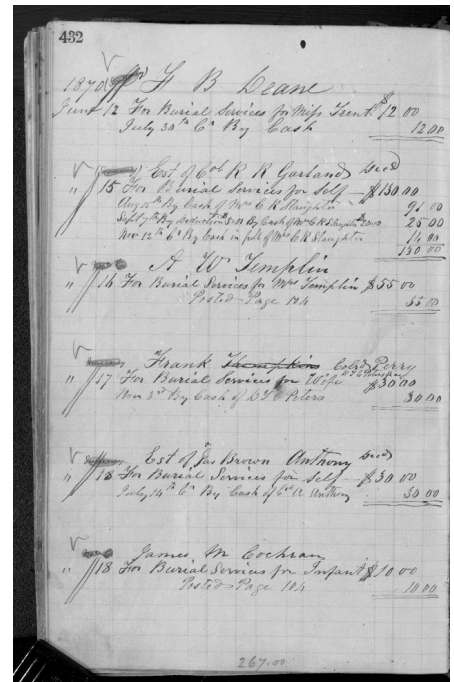 432
1870 F B Deane
June 12 For Burial Services for Miss Trent $12.00
July 30th By Cash 12.00
Est of Col R R Garland Decd
" 15 For Burial Services for Self $130.00
Aug 15th By Cash of Mrs C R Slaughter 91 00
Sept 7th By deduction $5.00 By Cash of Mrs C R Slaughter 20.00 25 00
Nov 12th By Cash in full of Mrs C R Slaughter 14 00
130 00
A W Templin
" 16 For Burial Services for Mrs Templin $55 00
Posted Page 104 55 00
Frank Thompkins Cold Perry
" 17 For Burial Services for Wife $30.00
Nov 3rd By Cash of Peters 30 00
Est of Jas Brown Anthony Decd
" 18 For Burial Services for Self $30 00
July 14th By Cash of A Anthony 30 00
James M Cochran
" 18 For Burial Services for Infant $10 00
Posted Page 104 10 00
267.00